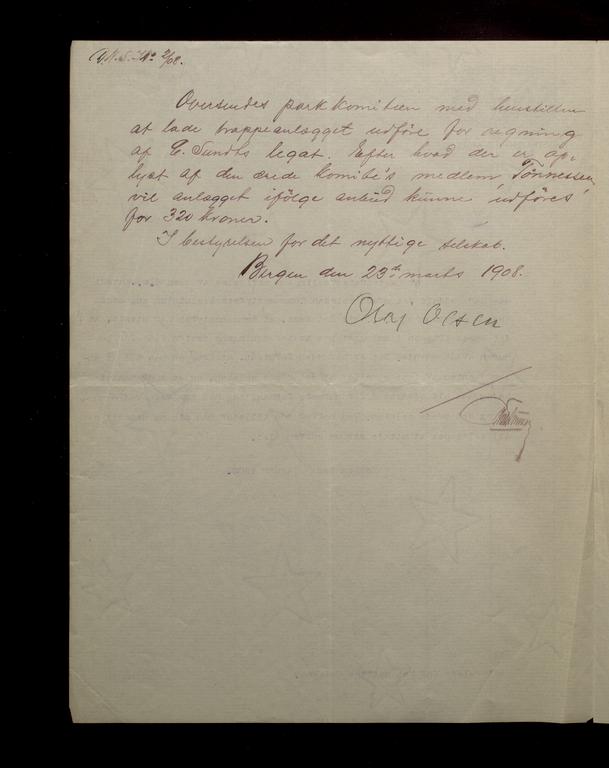 D.N.S. No 2/08.
Oversendes parkkomiteen med henstillen
at lade trappeanlægget udføre for regning
af E. Sundts legat. Efter hvad der er op-
lyst af den ærede komite's medlem Tönnessen
vil anlægget ifölge anbud kunne udföres
for 320 kroner.
I bestyrelsen for det nyttige selskab.
Bergen den 23de marts 1908.
Olaf Olsen